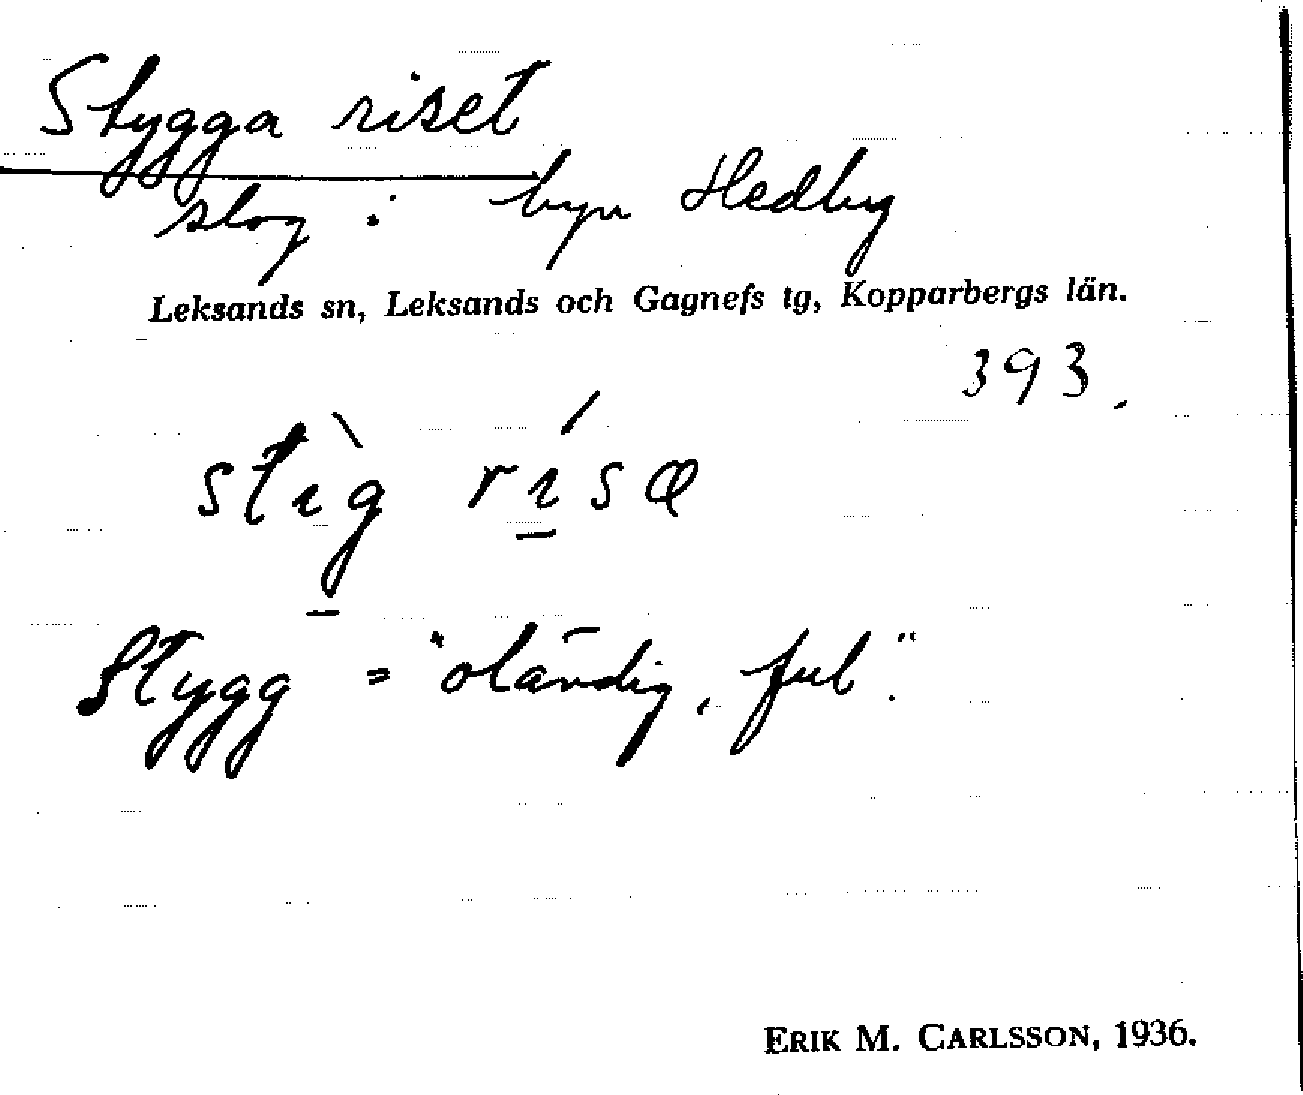 Stygga riset
slog i byn Hedby
Leksands sn, Leksands och Gagnefs tg, Kopparbergs län.
393.
stìg rísæ
Stygg = "oländig, ful".
ERIK M. CARLSSON, 1936.